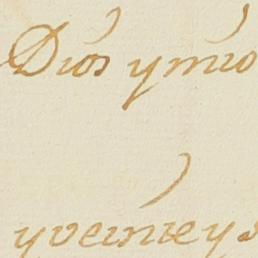 Dios y mio
y veinte y s